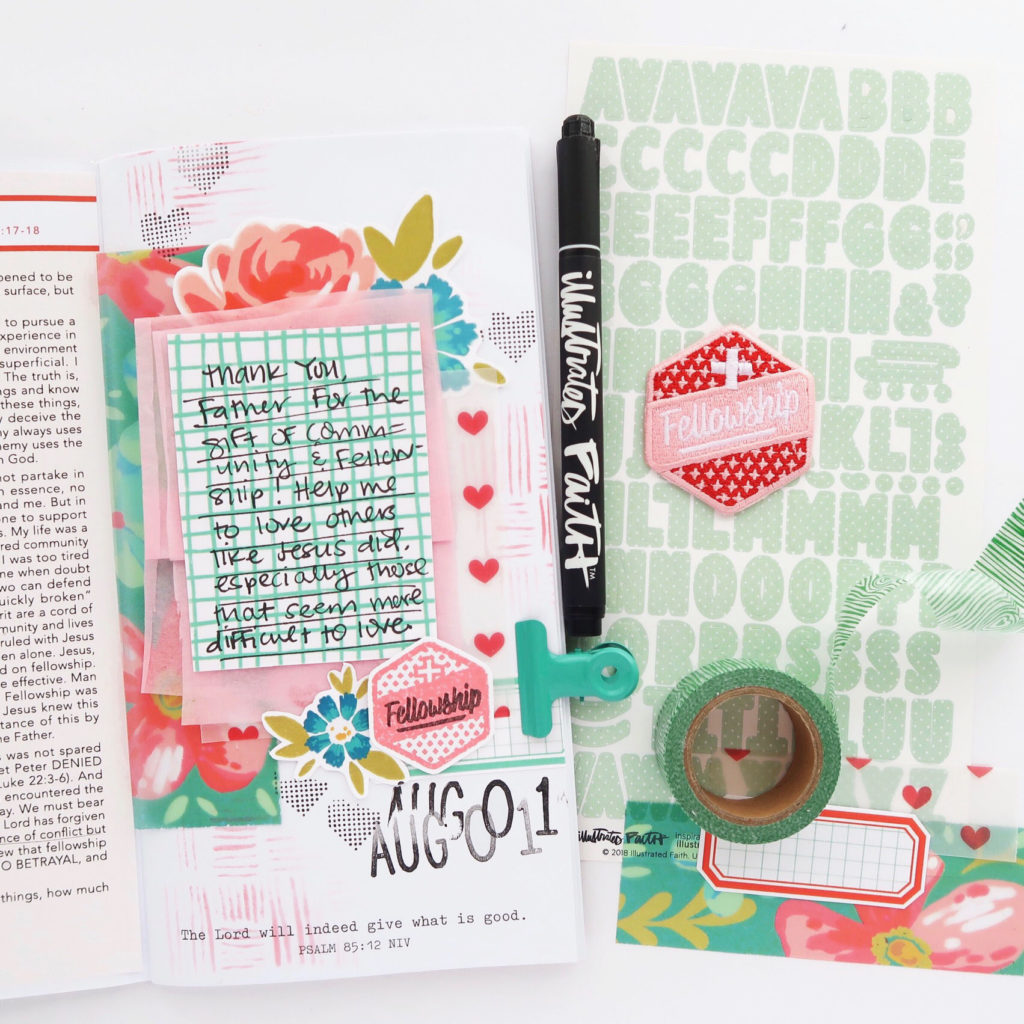 :17-18
pened to be
surface, but
to pursue a
experience in
environment
superficial. I
The truth is,
ngs and know
these things,
y deceive the
ny always uses
nemy uses the
n God.
not partake in
n essence, no
and me. But in
one to support
s. My life was a
red community
I was too tired
ne when doubt
wo can defend
quickly broken"
rit are a cord of
mmunity and lives
ruled with Jesus
en alone. Jesus,
d on fellowship.
e effective. Man
Fellowship was
Jesus knew this
tance of this by
he Father.
s was not spared
et Peter DENIED
Luke 22:3-6). And
encountered the
ay. We must bear
Lord has forgiven
ence of conflict but
ew that fellowship
O BETRAYAL, and
things, how much
Thank You,
Father For the
gift of comm=
unity & Fellow-
ship! Help me
to love others
like Jesus did,
especially those
that seem more
difficult to love.
Fellowship
AUG 01
AUG 01
The Lord will indeed give what is good.
PSALM 85:12 NIV
illustrated Faith™
AVAVAVABBB
CCCCCDDDE
EEEEFFFGG
Fellowship
illustrated Faith
© 2018 Illustrated Faith,